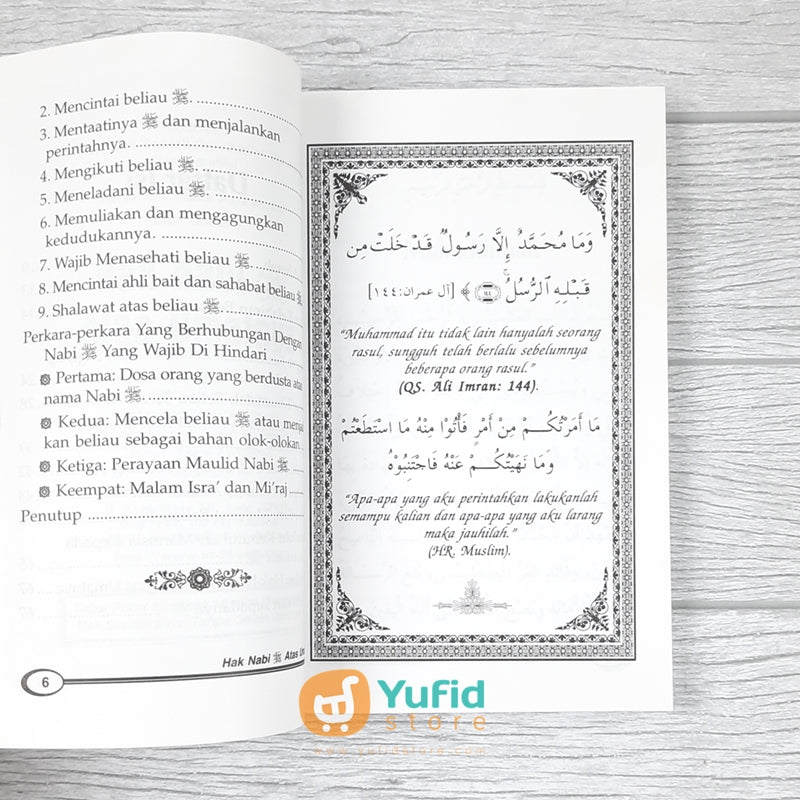 2. Mencintai beliau ﷺ. ....................
3. Mentaatinya ﷺ dan menjalankan
perintahnya. ....................
4. Mengikuti beliau ﷺ. ....................
5. Meneladani beliau ﷺ. ....................
6. Memuliakan dan mengagungkan
kedudukannya. ....................
7. Wajib Menasehati beliau ﷺ
8. Mencintai ahli bait dan sahabat beliau ﷺ
9. Shalawat atas beliau ﷺ. ....................
Perkara-perkara Yang Berhubungan Dengan
Nabi ﷺ Yang Wajib Di Hindari ..........
Pertama: Dosa orang yang berdusta atas
nama Nabi ﷺ. ....................
Kedua: Mencela beliau ﷺ atau menja
kan beliau sebagai bahan olok-olokan.
Ketiga: Perayaan Maulid Nabi ﷺ.
Keempat: Malam Isra' dan Mi'raj ....
Penutup ....................
Hak Nabi ﷺ Atas Um
6
وَمَا مُحَمَّدٌ إِلَّا رَسُولٌ قَدْ خَلَتْ مِن
قَبْلِهِ الرُّسُلُ ۚ ١٤٤ ﴾ [آل عمران:١٤٤]
"Muhammad itu tidak lain hanyalah seorang
rasul, sungguh telah berlalu sebelumnya
beberapa orang rasul."
(QS. Ali Imran: 144).
مَا أَمَرْتُكُمْ مِنْ أَمْرٍ فَأْتُوا مِنْهُ مَا اسْتَطَعْتُمْ
وَمَا نَهَيْتُكُمْ عَنْهُ فَاجْتَنِبُوْهُ
"Apa-apa yang aku perintahkan lakukanlah
semampu kalian dan apa-apa yang aku larang
maka jauhilah."
(HR. Muslim).
Yufid
store
www.yufidstore.com